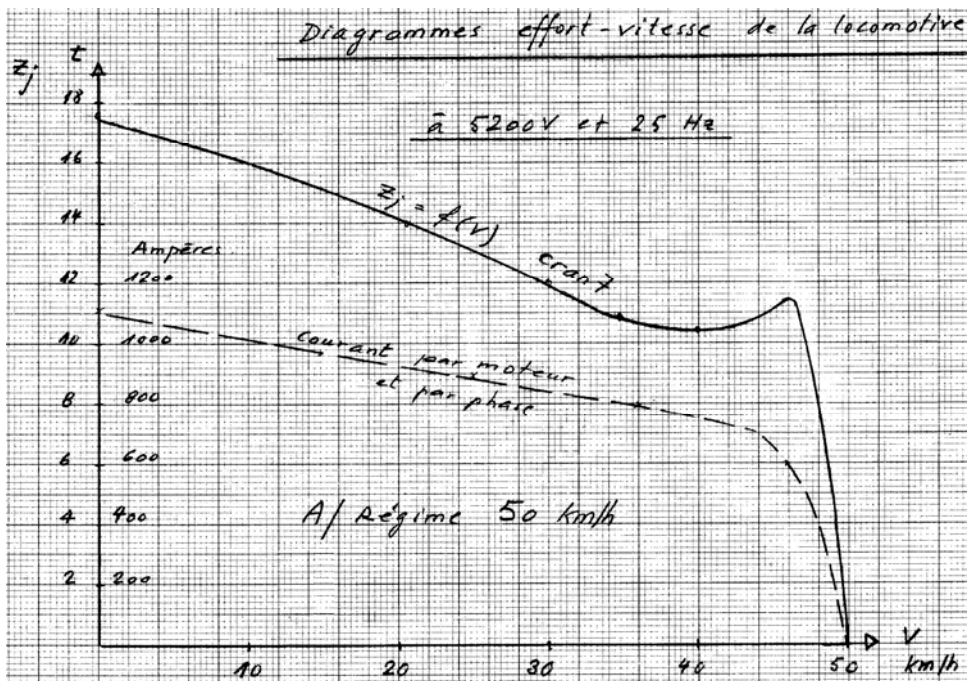 Diagrammes effort-vitesse de la locomotive
à 5200V et 25 Hz
Zj t
18
16
14
12
10
8
6
4
2
Ampères
1200
1000
800
600
400
200
Zj = f(V)
cran 7
Courant par moteur
et par phase
A/ Régime 50 km/h
10 20 30 40 50
V
km/h